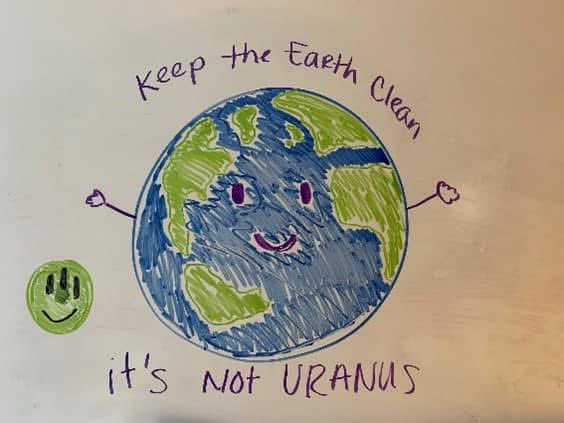 Keep the Earth Clean
it's Not URANUS